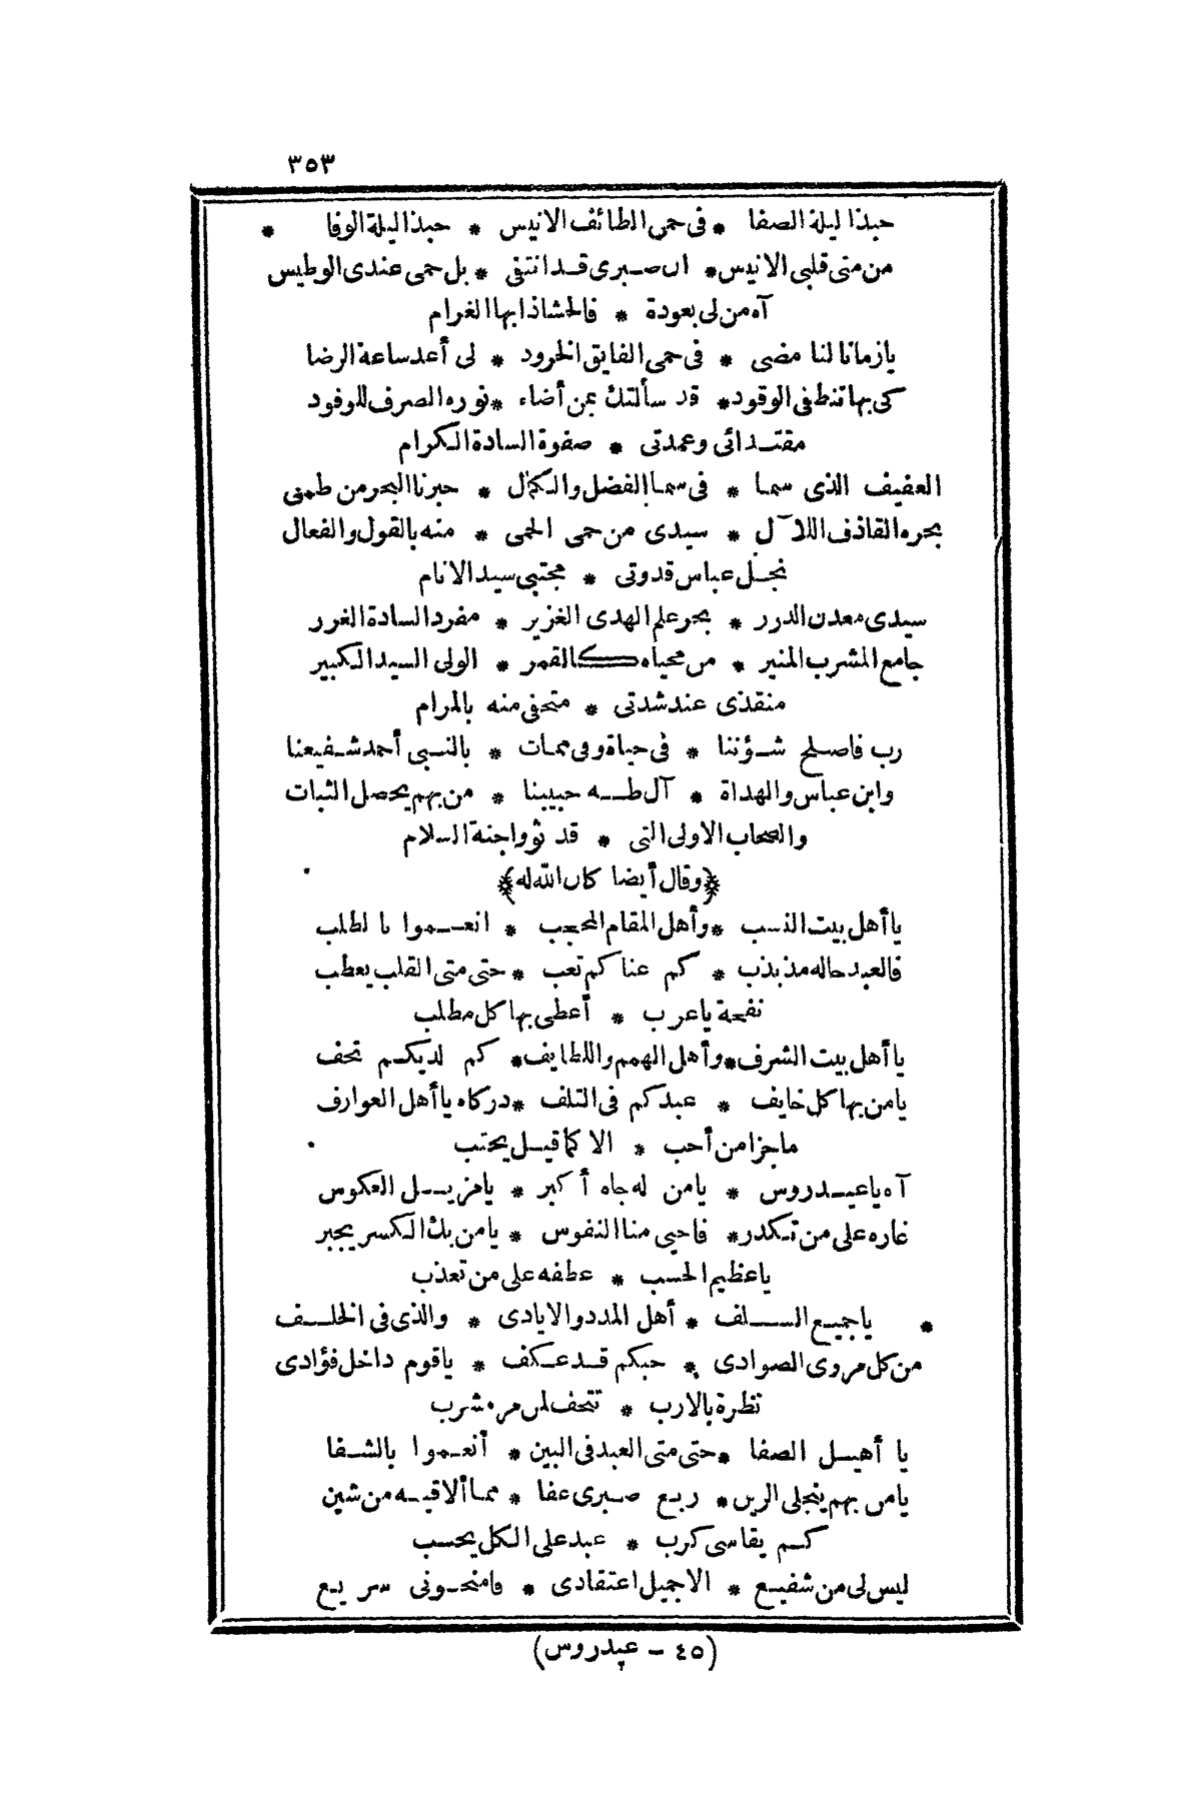 ٣٥٣
حبذا ليلة الصفا * فى حمى الطائف الانيس * حبذا ليلة الوفا *
من متى قلبى الانيس * ان صبرى قد انتفى * بل حمى عندى الوطيس
آه من لى بعودة * فالحشا ذا بها الغرام
يا زمانا لنا مضى * فى حمى الفايق الخرود * لى أعد ساعة الرضا
كى بها تنطفى الوقود * قد سألتك بمن أضاء * نوره الصرف للوفود
مقتدائى وعمدتى * صفوة السادة الكرام
العفيف الذى سما * فى سما الفضل والكمال * حبرنا البحر من طمى
بحره القاذف اللآل * سيدى من حمى الحمى * منه بالقول والفعال
نجل عباس قدوتى * مجتبى سيد الانام
سيدى معدن الدرر * بحر علم الهدى الغزير * مفرد السادة الغرر
جامع المشرب المنير * من محياه كالقمر * الولى السيد الكبير
منقذى عند شدتى * متحفى منه بالمرام
رب فاصلح شؤننا * فى حياة وفى ممات * بالنبى أحمد شفيعنا
وابن عباس والهداة * آل طه حبيبنا * من بهم يحصل الثبات
والصحاب الاولى التى * قد ثووا جنة السلام
﴿وقال أيضا كان الله له﴾
يا أهل بيت النسب * وأهل المقام المحجب * انعموا بالطلب
فالعبد حاله مذبذب * كم عنا كم تعب * حتى متى القلب يعطب
نفحة يا عرب * أعطى بها كل مطلب
يا أهل بيت الشرف * وأهل الهمم واللطايف * كم لديكم تحف
يا من بها كل خايف * عبدكم فى التلف * دركاه يا أهل العوارف
ما جزا من أحب * الا كما قيل يحتب
آه يا عيدروس * يا من له جاه أكبر * يا مزيل العكوس
غاره على من تكدر * فاحيى منا النفوس * يا من بك الكسر يجبر
يا عظيم الحسب * عطفه على من تعذب
* يا جميع السلف * أهل المدد والايادى * والذى فى الخلف
من كل مروى الصوادى * حبكم قد عكف * يا قوم داخل فؤادى
نظرة بالارب * تتحف لمن مشرب
يا أهيل الصفا * حتى متى العبد فى البين * أنعموا بالشفا
يا من بهم ينجلى الرين * ربع صبرى عفا * مما ألاقيه من شين
كم يقاسى كرب * عبد على الكل يحسب
ليس لى من شفيع * الا جميل اعتقادى * فامنحونى سريع
(٤٥ - عيدروس)